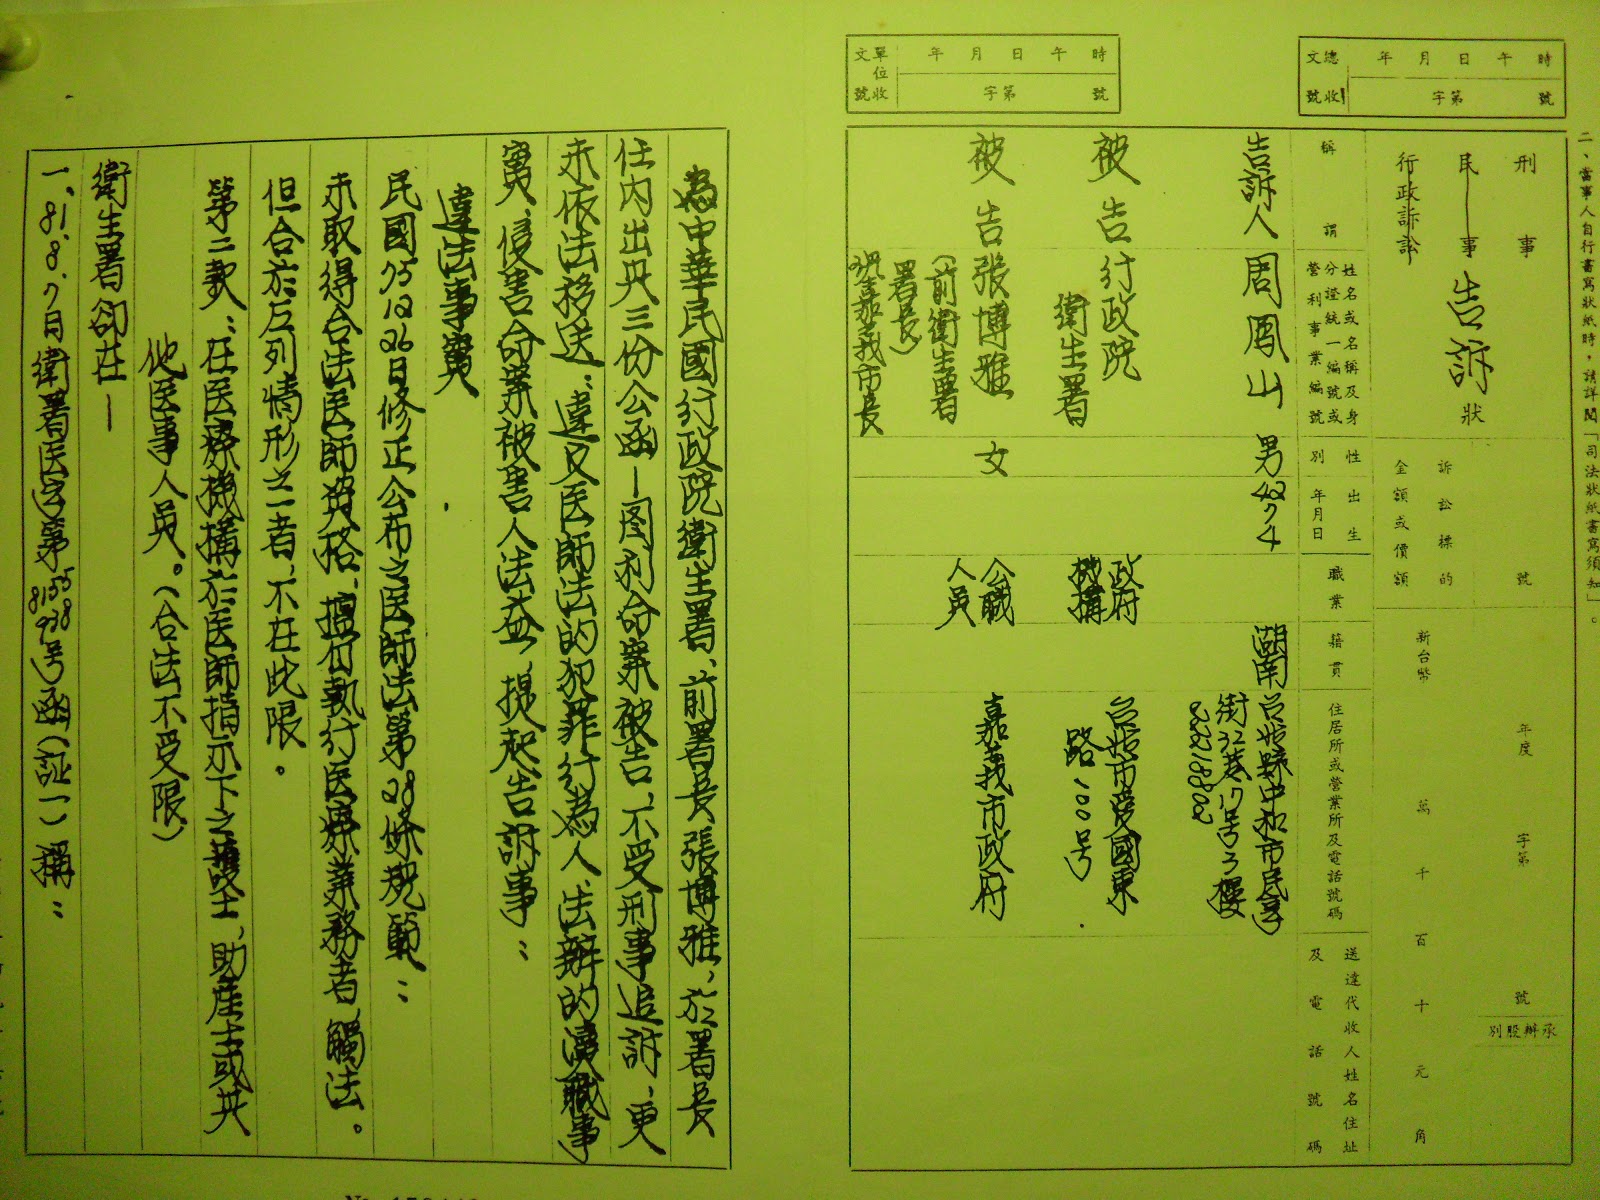 二、當事人自行書寫狀紙時，請詳閱「司法狀紙書寫須知」。
總收文號 年 月 日 午 時
字第 號
單位收文號 年 月 日 午 時
字第 號
刑事
民事
行政訴訟
告訴狀
號
訴訟標的
金額或價額
年度 字第 號
承辦股別
新台幣 萬 千 百 十 元 角
稱謂
姓名或名稱及身
分證統一編號或
營利事業編號
性別
出生
年月日
職業
籍貫
住居所或營業所及電話號碼
送達代收人姓名住址
及電話號碼
告訴人 周 山 男 42 7 4 湖南 台北縣中和市民享
街32巷17号3樓
22218802
被告 行政院 政府 台北市愛國東
衛生署 機構 路一〇〇号
被告 張博雅 女 公職 嘉義市政府
人員
（前衛生署
署長）
現嘉義市長
為中華民國行政院衛生署、前署長張博雅，於署長
任内出具三份公函—图利命案被告、不受刑事追訴，更
未依法移送；違反医師法的犯罪行為人、法辦的瀆職事
實，侵害命案被害人法益，提起告訴事：
違法事實
民國75 12 26日修正公布之医師法第28條規範：
未取得合法医師資格、擅自執行医療業務者，觸法。
但合於左列情形之一者，不在此限。
第二款：在医療機構於医師指示下之護士，助產士或其
他医事人員。（合法不受限）
衛生署 卻在—
一、81.8.7日衛署医字第8155938号函（証一）稱：